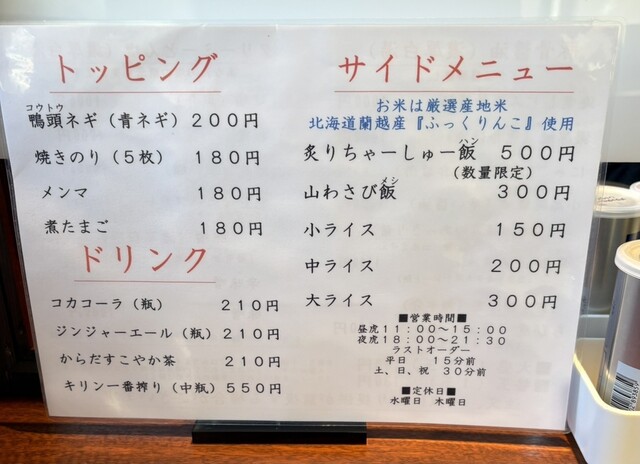 トッピング
コウトウ
鴨頭ネギ（青ネギ）２００円
焼きのり（５枚）１８０円
メンマ １８０円
煮たまご １８０円
ドリンク
コカコーラ（瓶）２１０円
ジンジャーエール（瓶）２１０円
からだすこやか茶 ２１０円
キリン一番搾り（中瓶）５５０円
サイドメニュー
お米は厳選産地米
北海道蘭越産『ふっくりんこ』使用
ハン
炙りちゃーしゅー飯 ５００円
（数量限定）
メシ
山わさび飯 ３００円
小ライス １５０円
中ライス ２００円
大ライス ３００円
■営業時間■
昼虎１１：００～１５：００
夜虎１８：００～２１：３０
ラストオーダー
平日 １５分前
土、日、祝 ３０分前
■定休日■
水曜日 木曜日